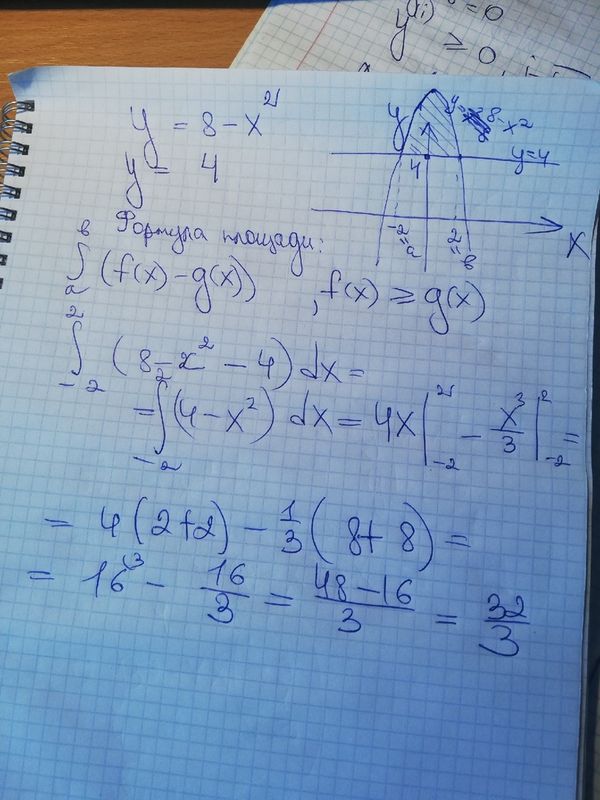 y⁽ⁱ⁾ = 0
≥ 0
y = 8 - x²
y = 4
y
y = 8 - x²
y = 4
4
-2 = a
2 = в
x
Формула площади:
∫ₐᵇ (f(x) - g(x)) , f(x) ≥ g(x)
∫₋₂² (8 - x² - 4) dx =
= ∫₋₂² (4 - x²) dx = 4x |₋₂² - x³/3 |₋₂² =
= 4(2+2) - 1/3 (8+8) =
= 16⁽³ - 16/3 = 48-16/3 = 32/3